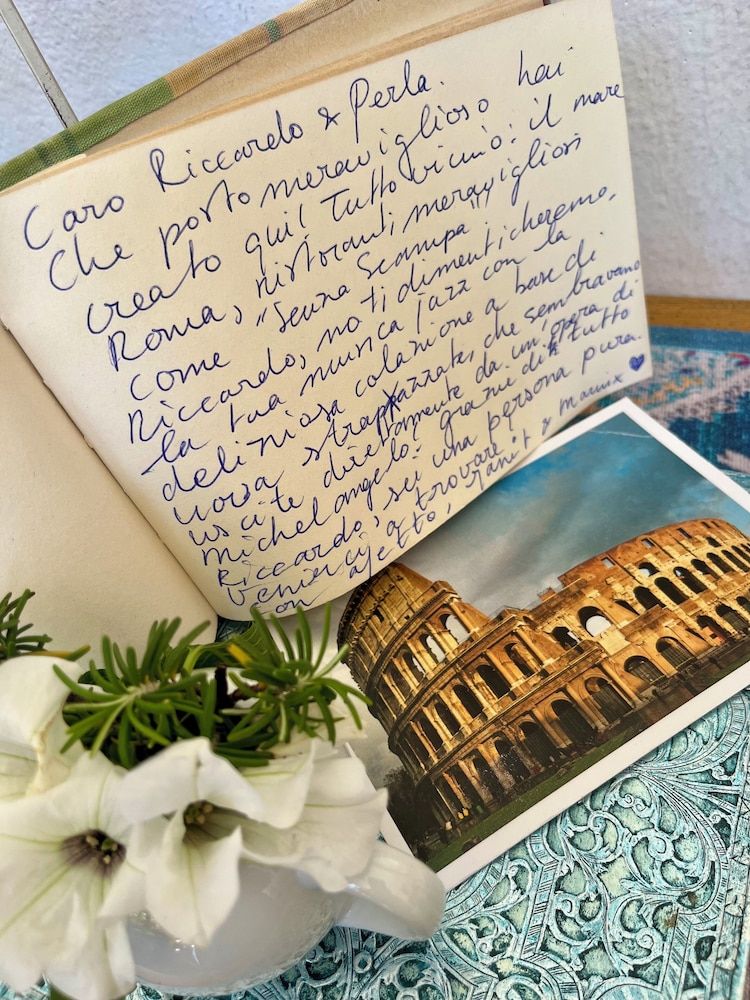 Caro Riccardo & Perla.
Che posto meraviglioso hai
creato qui! Tutto vicino: il mare
Roma, ristoranti meravigliosi
come "Senza Scampa"!
Riccardo, no ti dimenticheremo,
la tua musica jazz con la
deliziosa colazione a base di
uova strappazzate, che sembravano
uscite direttamente da un'opera di
Michelangelo! grazie di tutto
Riccardo, sei una persona pura.
Venirci a trovare!
Con afetto, & Marnix